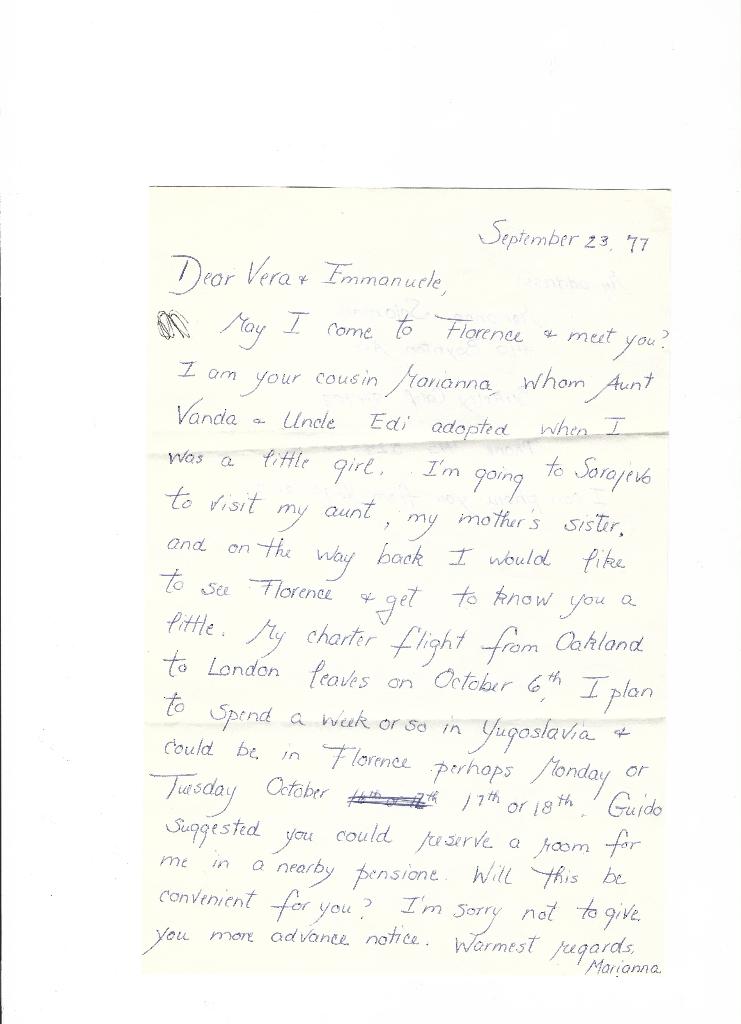 September 23, 77
Dear Vera & Immanuele,
May I come to Florence & meet you?
I am your cousin Marianna whom Aunt
Vanda & Uncle Edi adopted when I
was a little girl. I'm going to Sarajevo
to visit my aunt, my mother's sister,
and on the way back I would like
to see Florence & get to know you a
little. My charter flight from Oakland
to London leaves on October 6th, I plan
to spend a week or so in Yugoslavia &
could be in Florence perhaps Monday or
Tuesday October 16th or 17th 17th or 18th. Guido
suggested you could reserve a room for
me in a nearby pensione. Will this be
convenient for you? I'm sorry not to give
you more advance notice. Warmest regards,
Marianna